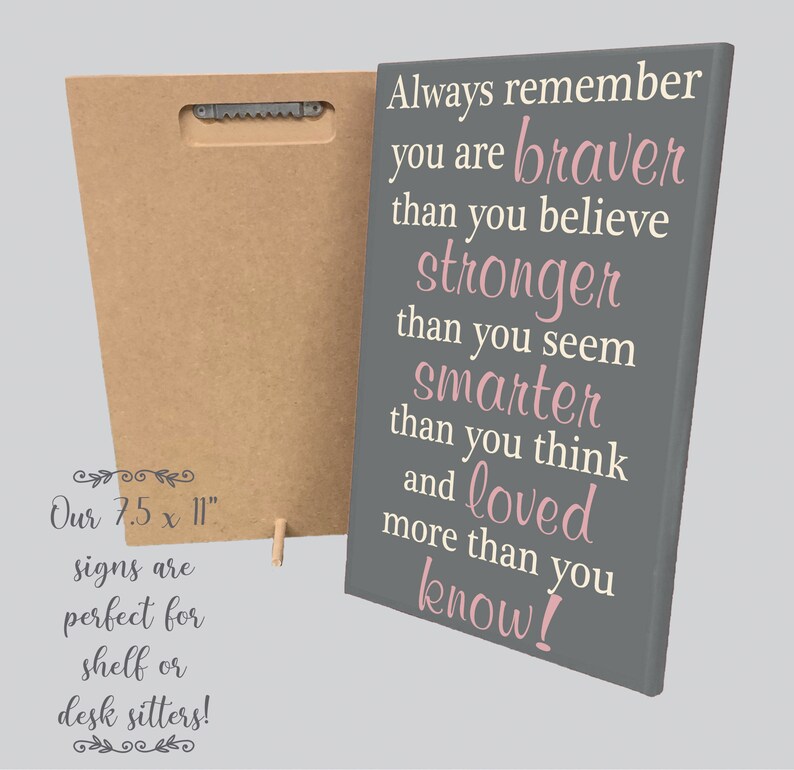 Always remember
you are braver
than you believe
stronger
than you seem
smarter
than you think
and loved
more than you
know!
Our 7.5 x 11"
signs are
perfect for
shelf or
desk sitters!